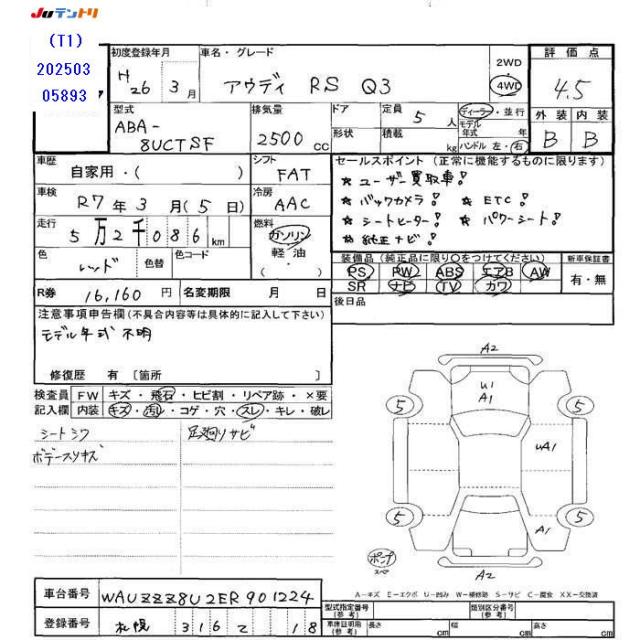 JUテントリ
(T1)
202503
05893
初度登録年月
H26 3月
車名・グレード
アウディ RS Q3
2WD
4WD
評価点
4.5
外装 内装
B B
型式
ABA-
8UCTSF
排気量
2500 cc
ドア
形状
定員 5 人
積載 kg
ディーラー・並行
モデル
年式 年
ハンドル 左・右
車歴
自家用・( )
シフト
FAT
セールスポイント(正常に機能するものに限ります)
★ユーザー買取車!
★バックカメラ! ★ETC!
★シートヒーター! ★パワーシート!
★純正ナビ!
車検
R7年3月(5日)
冷房
AAC
走行
5万2千086km
燃料
ガソリン
軽油
( )
色
レッド
色替
色コード
装備品(純正品に限り○をつけてください)
PS PW ABS エアB AW
SR ナビ TV カワ
新車保証書
有・無
R券 16,160円
名変期限 月 日
後日品
注意事項申告欄(不具合内容等は具体的に記入して下さい)
モデル年式不明
修復歴 有〔箇所 〕
検査員
記入欄
FW キズ・飛石・ヒビ割・リペア跡・×要
内装 キズ・汚れ・コゲ・穴・スレ・キレ・破レ
シートシワ
ボデースリキズ
足廻リサビ
A2
U1
A1
5
5
UA1
5
5
A1
ポンプ
スペア
A2
A-キズ E-エクボ U-凹み W-補修跡 S-サビ C-腐食 XX-交換済
車台番号 WAUZZZ8U2ER901224
登録番号 札幌 316 て 18
型式指定番号
(参考)
類別区分番号
(参考)
車庫証明用
(参考)
長さ cm
幅 cm
高さ cm